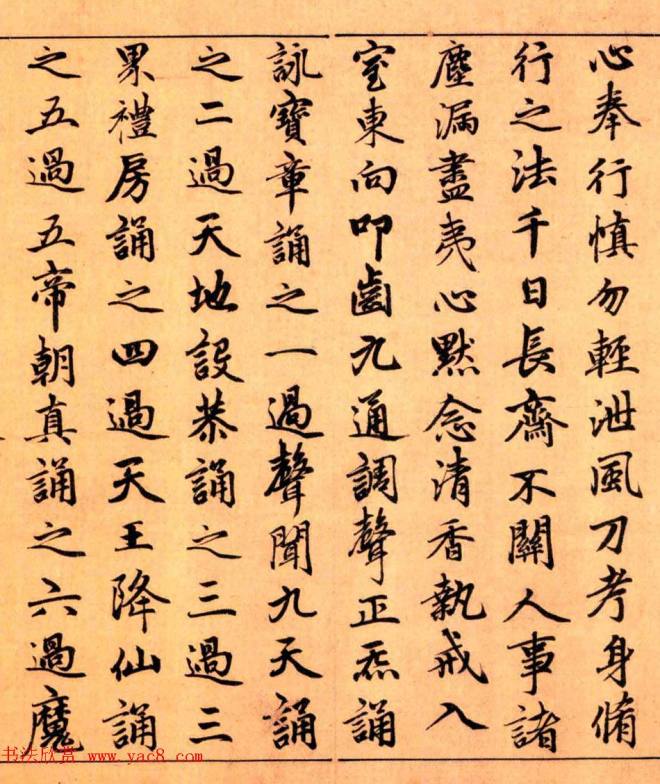 心奉行慎勿輕泄風刀考身脩
行之法千日長齋不關人事諸
塵漏盡夷心默念清香執戒入
室東向叩齒九通調聲正炁誦
詠寶章誦之一過聲聞九天誦
之二過天地設恭誦之三過三
界禮房誦之四過天王降仙誦
之五過五帝朝真誦之六過魔
书法欣赏 www.yac8.com